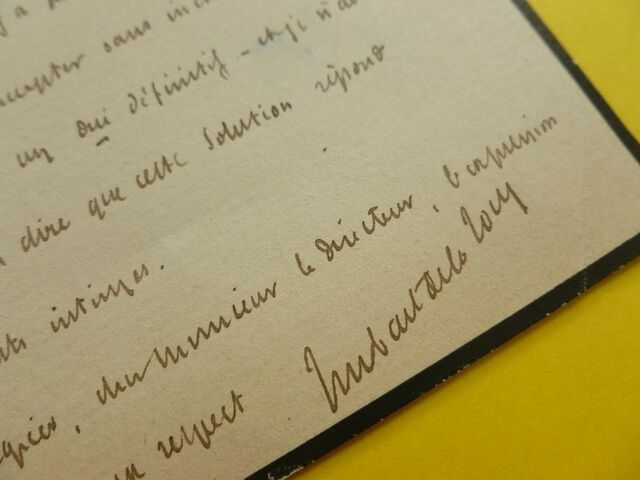 accepter sans
un oui définitif – et je n'ai
dire que cette solution répond
intimes.
cher Monsieur le directeur, l'expression
respect
Imbart de la Tour